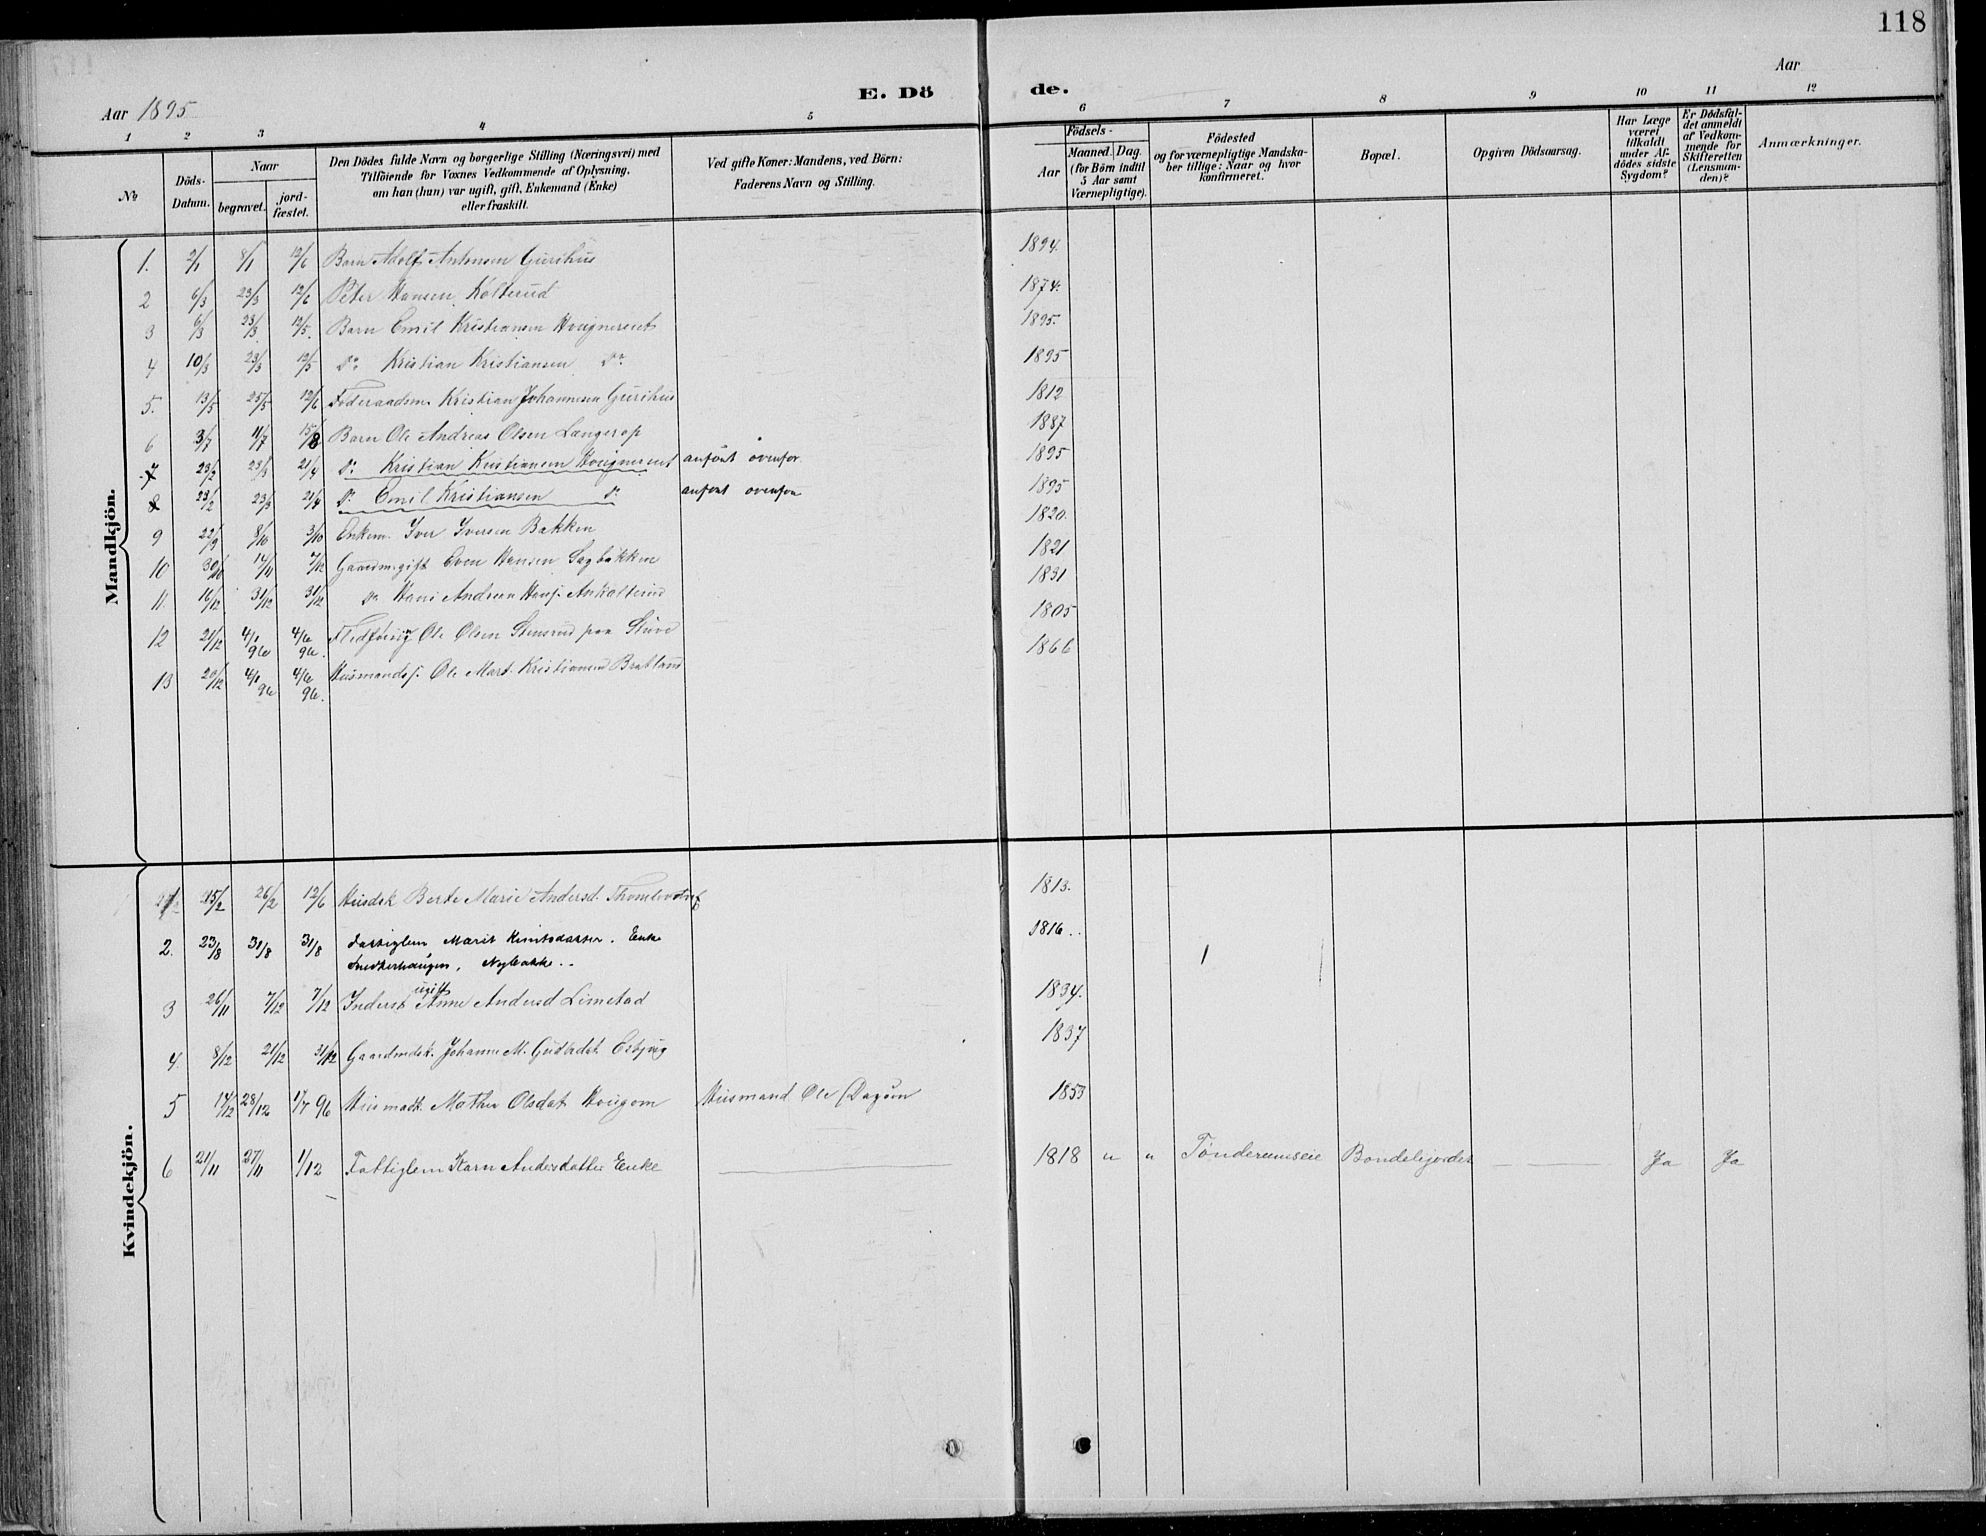 118
Aar 1895
E. Dö de.
Aar
1 2 3 4 5 6 7 8 9 10 11 12
No
Döds-Datum.
Naar
begravet.
jord-fæstet.
Den Dödes fulde Navn og borgerlige Stilling (Næringsvei) med
Tilföiende for Voxnes Vedkommende af Oplysning,
om han (hun) var ugift, gift, Enkemand (Enke)
eller fraskilt.
Ved gifte Koner: Mandens, ved Börn:
Faderens Navn og Stilling.
Födsels-
Aar
Maaned. Dag.
(for Börn indtil
5 Aar samt
Værnepligtige).
Födested
og for værnepligtige Mandska-
ber tillige: Naar og hvor
konfirmeret.
Bopæl.
Opgiven Dödsaarsag.
Har Læge
været
tilkaldt
under Af-
dödes sidste
Sygdom?
Er Dödsfal-
det anmeldt
af Vedkom-
mende for
Skifteretten
(Lensman-
den)?
Anmærkninger.
Mandkjön.
1. 2/1 8/1 12/6 Barn Adolf Antonsen Gurihus 1894.
2 6/3 23/3 12/6 Peter Hansen Kolterud 1874.
3 6/3 23/3 12/5. Barn Emil Kristiansen 1895.
4 10/3 23/3 12/5 Do Kristian Kristiansen Do 1895
5. 13/5 25/5 12/6 Föderaadsm. Kristian Johannesen Gurihus 1812
6 3/7 11/7 15/8 Barn Ole Andreas Olsen Langerop 1887
7 23/2 23/3 21/4 Do Kristian Kristiansen anfört ovenfor 1895
8 23/2 23/3 21/4 Do Emil Kristiansen Do anfört ovenfor 1895
9 22/9 8/10 3/10 Enkem. Iver Iversen Bakken 1820.
10 30/10 14/11 7/12 Gaardm. gift Even Hansen Sagbakken 1821
11. 16/12 31/12 31/12 Do Hans Andreas Hansen 1831
12 21/12 4/1 96 4/6 96. Ole Olsen Stensrud paa Stuve 1805
13 20/12 4/1 96 4/6 96. Husmandss. Ole Mart. Kristiansen Bratland 1866
Kvindekjön.
25/2 26/2 12/6 Husdsk Berte Marie Andersd. 1813.
2. 23/8 31/8 31/8 Fattiglem Marit Knutsdatter. Enke 1816..
Snedkerhaugen, Nybakke..
ugift
3 26/11 7/12 7/12 Inderst Anne Andersd Limstad 1834.
4. 8/12 21/12 31/12 Gaardmdsk. Johanne M. 1837
5 14/12 28/12 1/7 96 Husmdk. Mathea Olsdat Hougom Husmand Ole 1853
6 21/11 27/11 1/12 Fattiglem Karn Andersdatter Enke 1818 " " Tönderumseie Bondelijordet Ja Ja